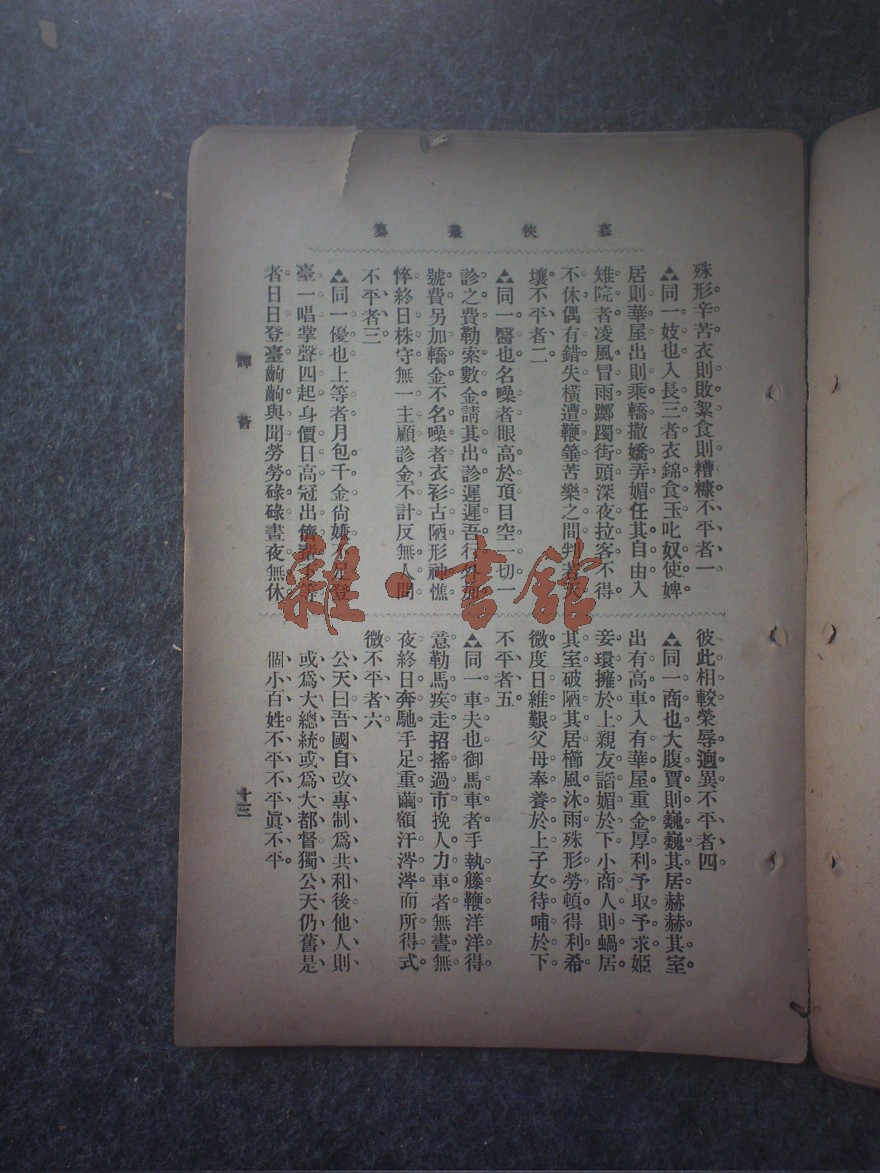 慕俠叢纂
殊形辛苦。衣則敗絮。食則糟糠。不平者一
▲同一妓也。入長三者。衣錦食玉。叱奴使婢。
居則華屋。出則乘轎。撒嬌弄媚。任其自由。入
雉院者。凌風冒雨。躑躅街頭。深夜拉客。不得
不休。偶有錯失。橫遭鞭箠。苦樂之間。判若天
壤。不平者二。
▲同一醫也。名噪者。眼高於頂。目空一切。一
診之費。勒索數金。請其出診。遲遲吾行。外加
號費。另加轎金。不名噪者。衣衫古陋。形神憔
悴。終日株守。無一主顧。診金不計。反無人問。
不平者三
▲同一優也。上等者。月包千金。尙嫌不足。登
臺一唱。掌聲四起。身價日高。冠出儕輩。下等
者。日日登臺。齣齣與聞。勞勞碌碌。晝夜無休。
彼此相較。榮辱逈異。不平者四
▲同一商也。大腹賈則巍巍其居。赫赫其室。
出有高車。入有華屋。重金厚利。予取予求。姬
妾環擁於上。親友諂媚於下。小商人則蝸居
其室。破陋其居。櫛風沐雨。殊形勞頓。得利希
微。度日維艱。父母奉養於上。子女待哺於下。
不平者五。
▲同一車夫也。御馬車者。手執籐鞭。洋洋得
意。勒馬疾走。招搖過市。挽人力車者。無晝無
夜。終日奔馳。手足重繭。額汗涔涔。而所得式
微。不平者六。
公天曰。吾國自改專制爲共和後。他人則
或爲大總統。或爲大都督。獨公天仍舊是
個小百姓。不平不平眞不平。
譚薈
十三
雜·書館